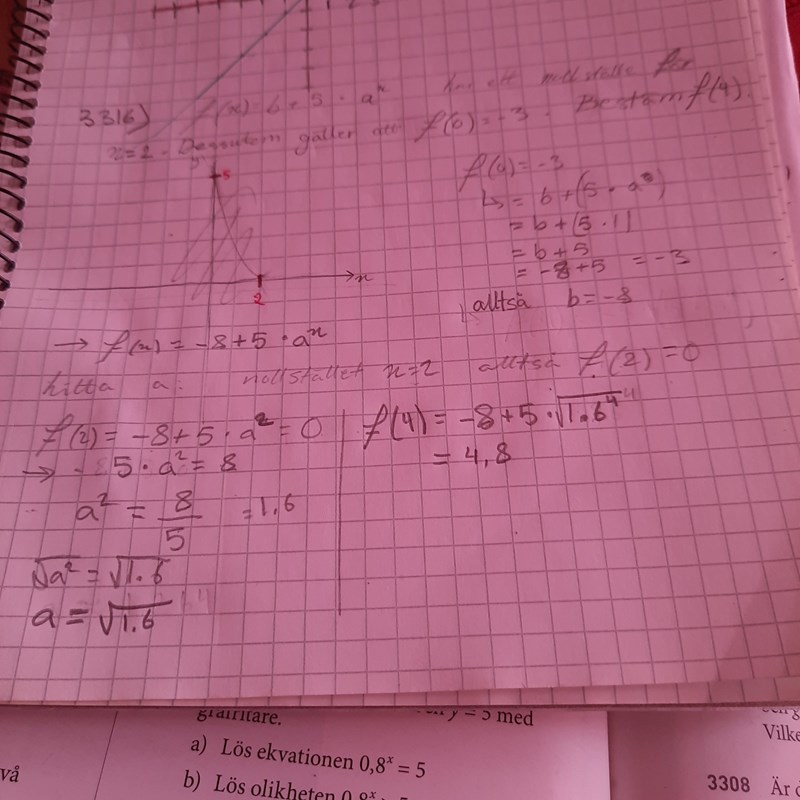 3316) f(x) = b + 5 · aˣ har ett nollställe för
x=2. Dessutom gäller att f(0) = -3. Bestäm f(4).
y
5
x
2
f(0) = -3
↳ = b + (5 · a⁰)
= b + (5 · 1)
= b + 5
= -8 + 5 = -3
alltså b = -8
→ f(x) = -8 + 5 · aˣ
hitta a: nollstället x=2 alltså f(2) = 0
f(2) = -8 + 5 · a² = 0
→ 5 · a² = 8
a² = 8/5 = 1.6
√a² = √1.6
a = √1.6
f(4) = -8 + 5 · √1.6⁴
= 4,8
grafritare.
y = 5 med
a) Lös ekvationen 0,8ˣ = 5
b) Lös olikheten 0,8ˣ
vå
Vilke
3308 Är